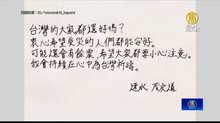 翻攝IG／mocomichi_hayami
台灣的大家都還好嗎？
衷心希望受災的人們都能安好。
可能還會有餘震，希望大家都要小心注意。
我會持續在心中為台灣祈禱。
速水 茂虎道
新唐人